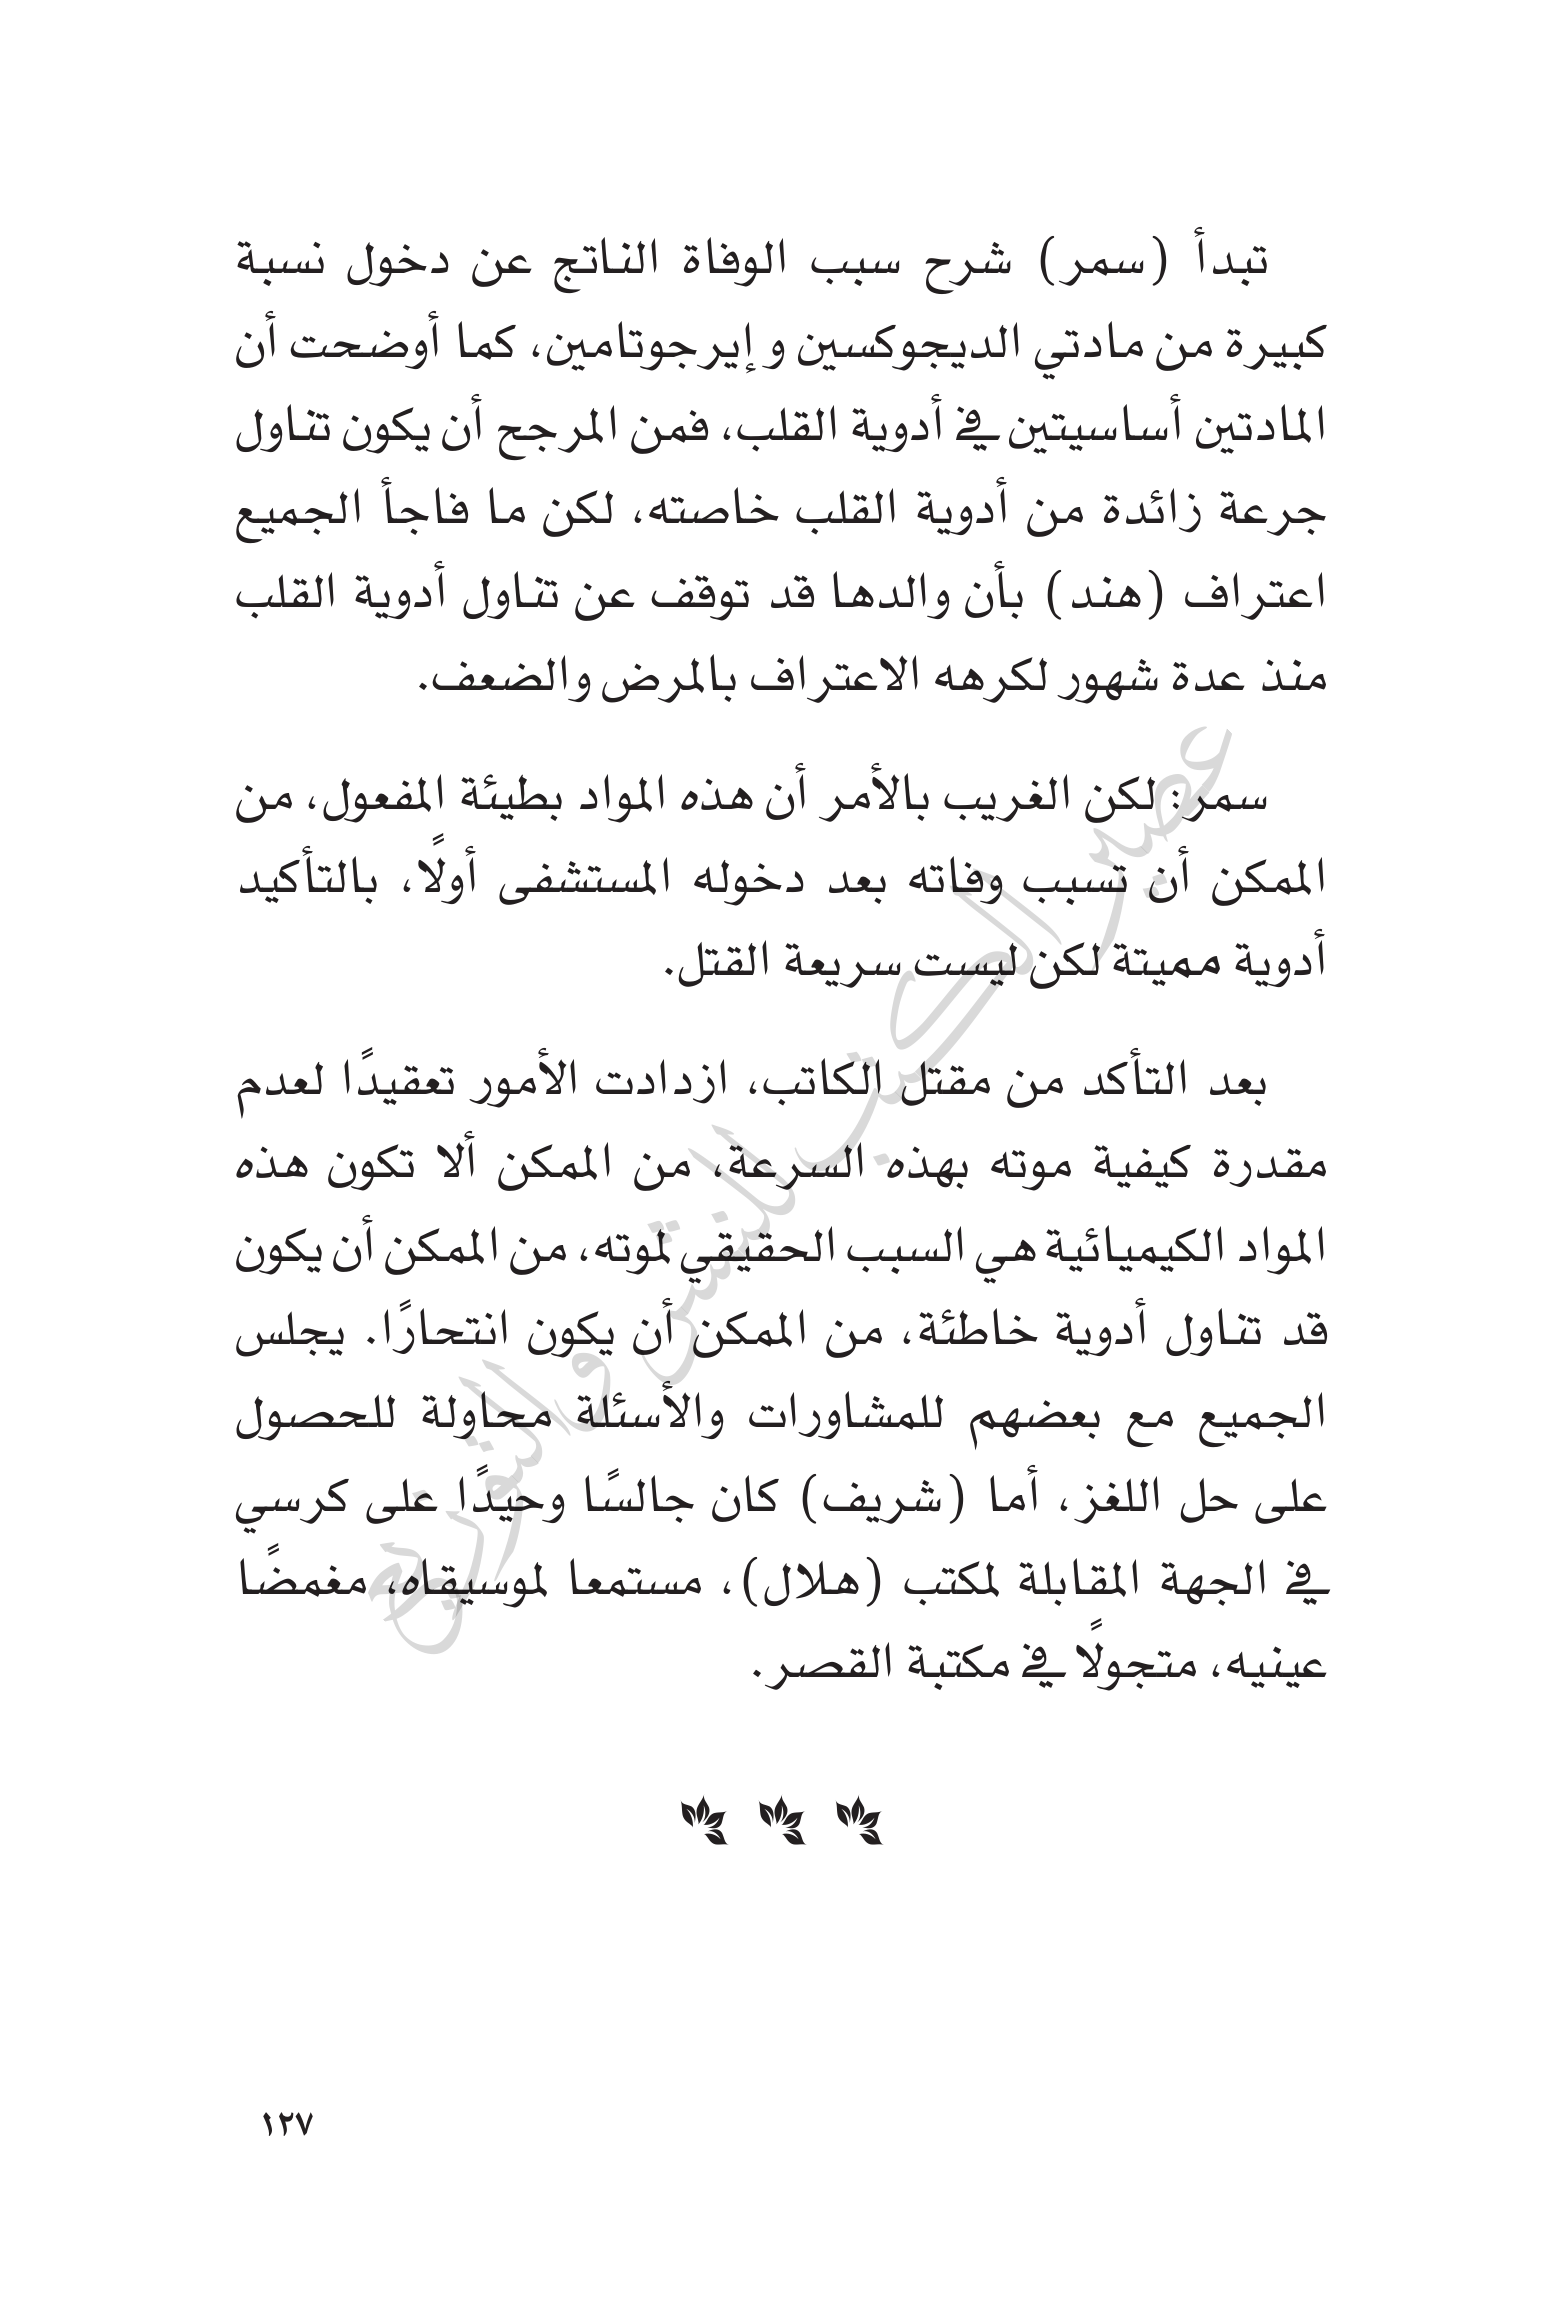 تبدأ (سمر) شرح سبب الوفاة الناتج عن دخول نسبة
كبيرة من مادتي الديجوكسين و إيرجوتامين، كما أوضحت أن
المادتين أساسيتين في أدوية القلب، فمن المرجح أن يكون تناول
جرعة زائدة من أدوية القلب خاصته، لكن ما فاجأ الجميع
اعتراف (هند) بأن والدها قد توقف عن تناول أدوية القلب
منذ عدة شهور لكرهه الاعتراف بالمرض والضعف.
سمر: لكن الغريب بالأمر أن هذه المواد بطيئة المفعول، من
الممكن أن تسبب وفاته بعد دخوله المستشفى أولًا، بالتأكيد
أدوية مميتة لكن ليست سريعة القتل.
بعد التأكد من مقتل الكاتب، ازدادت الأمور تعقيدًا لعدم
مقدرة كيفية موته بهذه السرعة، من الممكن ألا تكون هذه
المواد الكيميائية هي السبب الحقيقي لموته، من الممكن أن يكون
قد تناول أدوية خاطئة، من الممكن أن يكون انتحارًا. يجلس
الجميع مع بعضهم للمشاورات والأسئلة محاولة للحصول
على حل اللغز، أما (شريف) كان جالسًا وحيدًا على كرسي
في الجهة المقابلة لمكتب (هلال)، مستمعا لموسيقاه، مغمضًا
عينيه، متجولًا في مكتبة القصر.
عصير الكتب للنشر والتوزيع
١٢٧